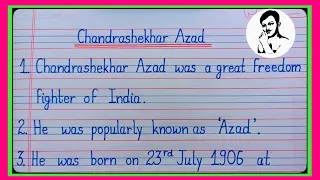 Chandrashekhar Azad
1. Chandrashekhar Azad was a great freedom
fighter of India.
2. He was popularly known as 'Azad'.
3. He was born on 23rd July 1906 at